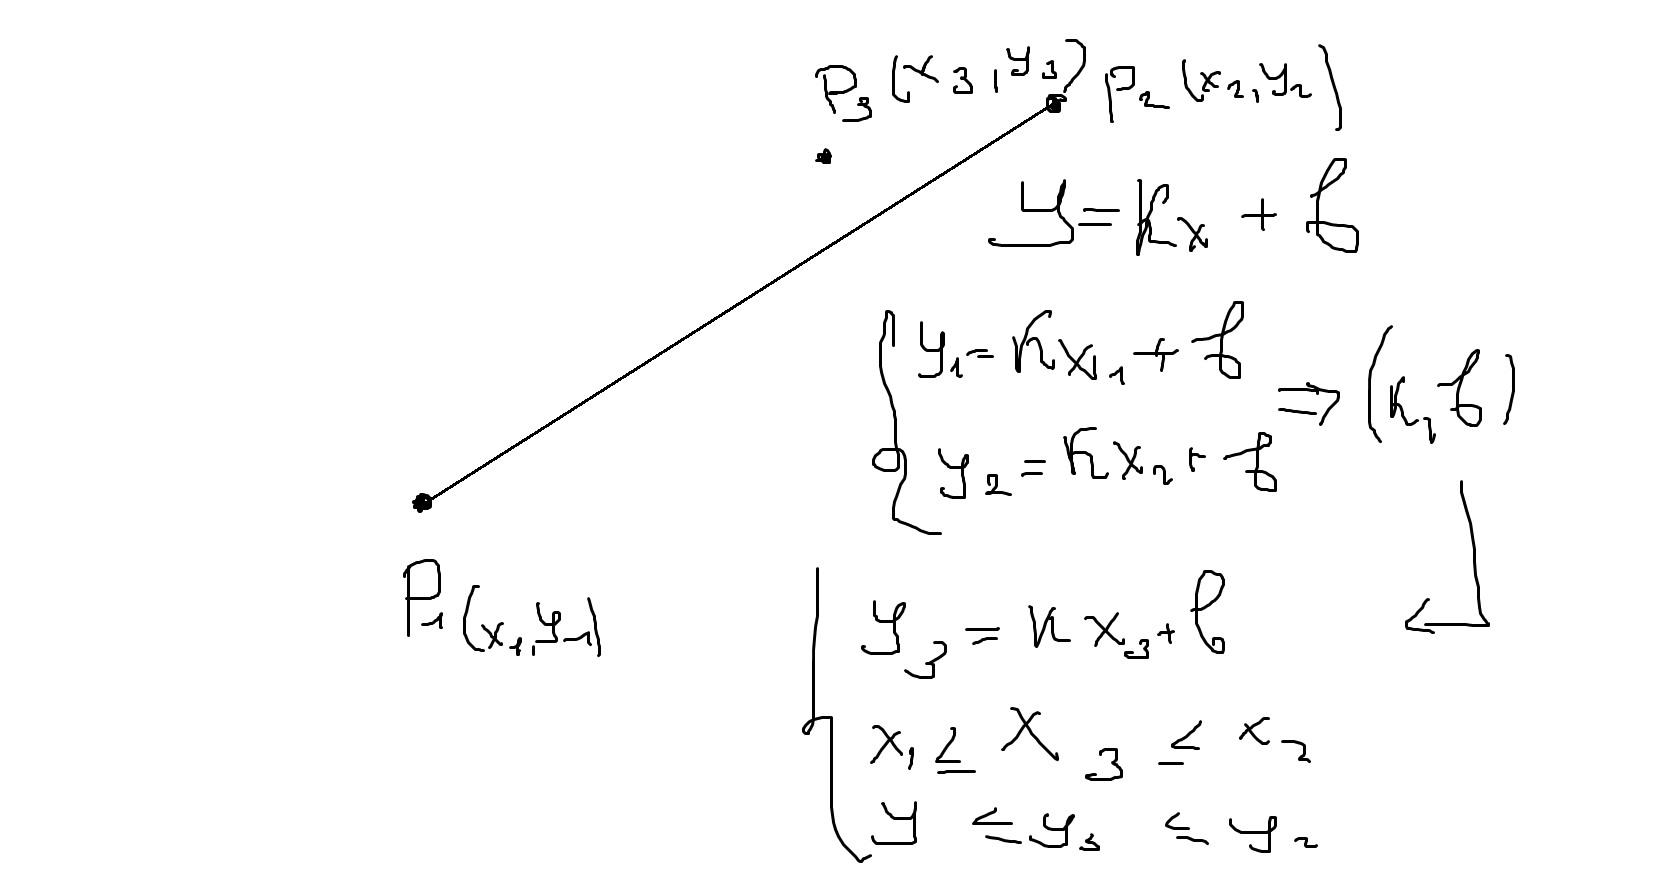 P₃ (x₃, y₃) P₂ (x₂, y₂)
y = kx + b
y₁ = kx₁ + b
⇒ (k, b)
y₂ = kx₂ + b
P₁ (x₁, y₁)
y₃ = kx₃ + b
x₁ ≤ x₃ ≤ x₂
y ≤ y₃ ≤ y₂